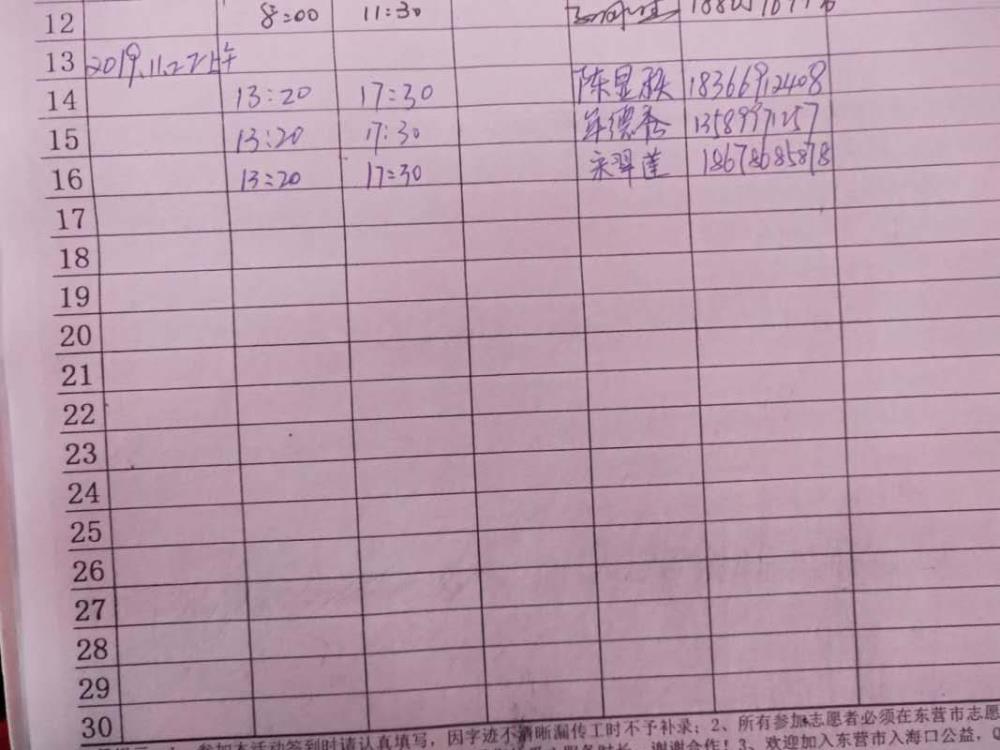 12 8:00 11:30
13 2019.11.22下午
14 13:20 17:30 18366912408
15 13:20 17:30 13589971257
16 13:20 17:30 宋翠莲 18678685878
17
18
19
20
21
22
23
24
25
26
27
28
29
30
参加本活动签到时请认真填写，因字迹不清晰漏传工时不予补录；2、所有参加志愿者必须在东营市志愿
谢谢合作！3、欢迎加入东营市入海口公益，